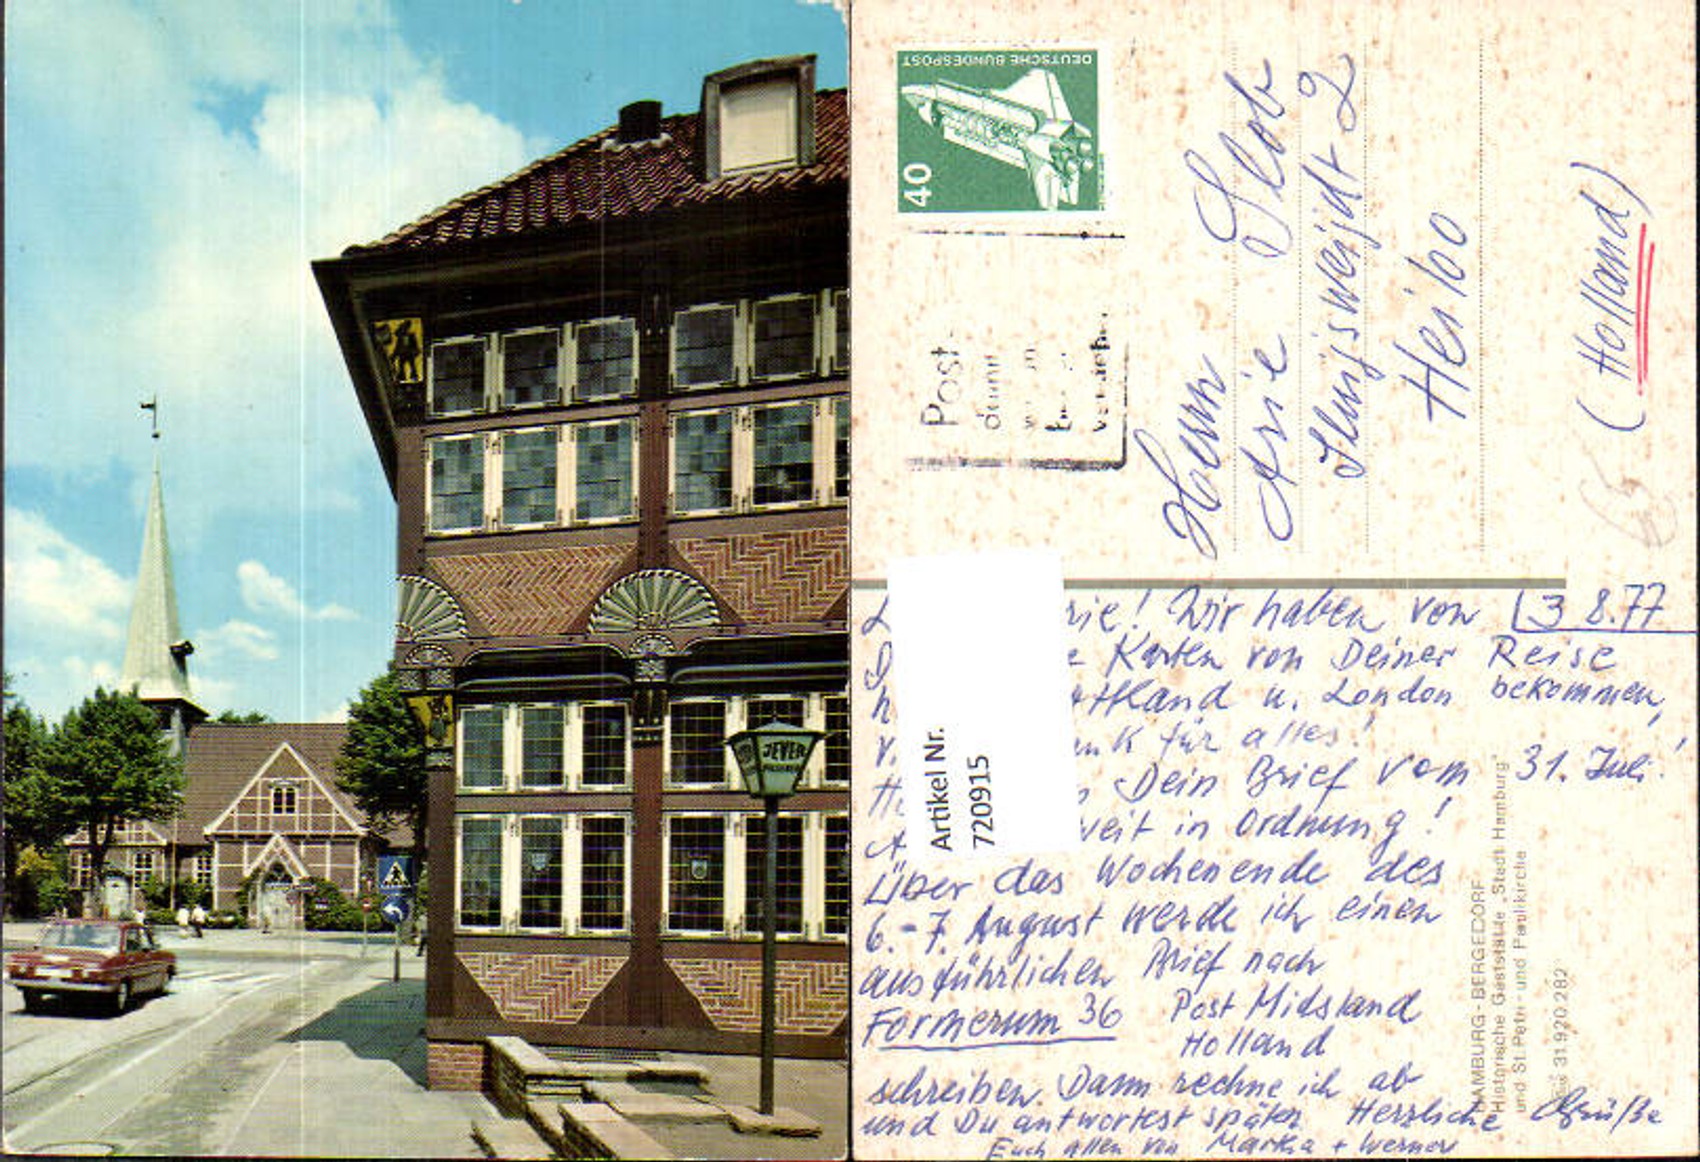 JEVER
DEUTSCHE BUNDESPOST
40
Post
Herrn
Arie Slob
2
Heiloo
(Holland)
65
Artikel Nr.
720915
3 8.77
rie! Wir haben von
Karten von Deiner Reise
ttland u. London bekommen,
nk für alles!
Dein Brief vom 31. Juli!
weit in Ordnung!
Über das Wochenende des
6.-7. August werde ich einen
ausführlichen Brief nach
Formerum 36 Post Midsland
Holland
schreiben. Dann rechne ich ab
und Du antwortest später. Herzliche Grüße
Euch allen von Marka + Werner
HAMBURG - BERGEDORF
Historische Gaststätte „Stadt Hamburg"
und St. Petri- und Paulikirche
31 920 282